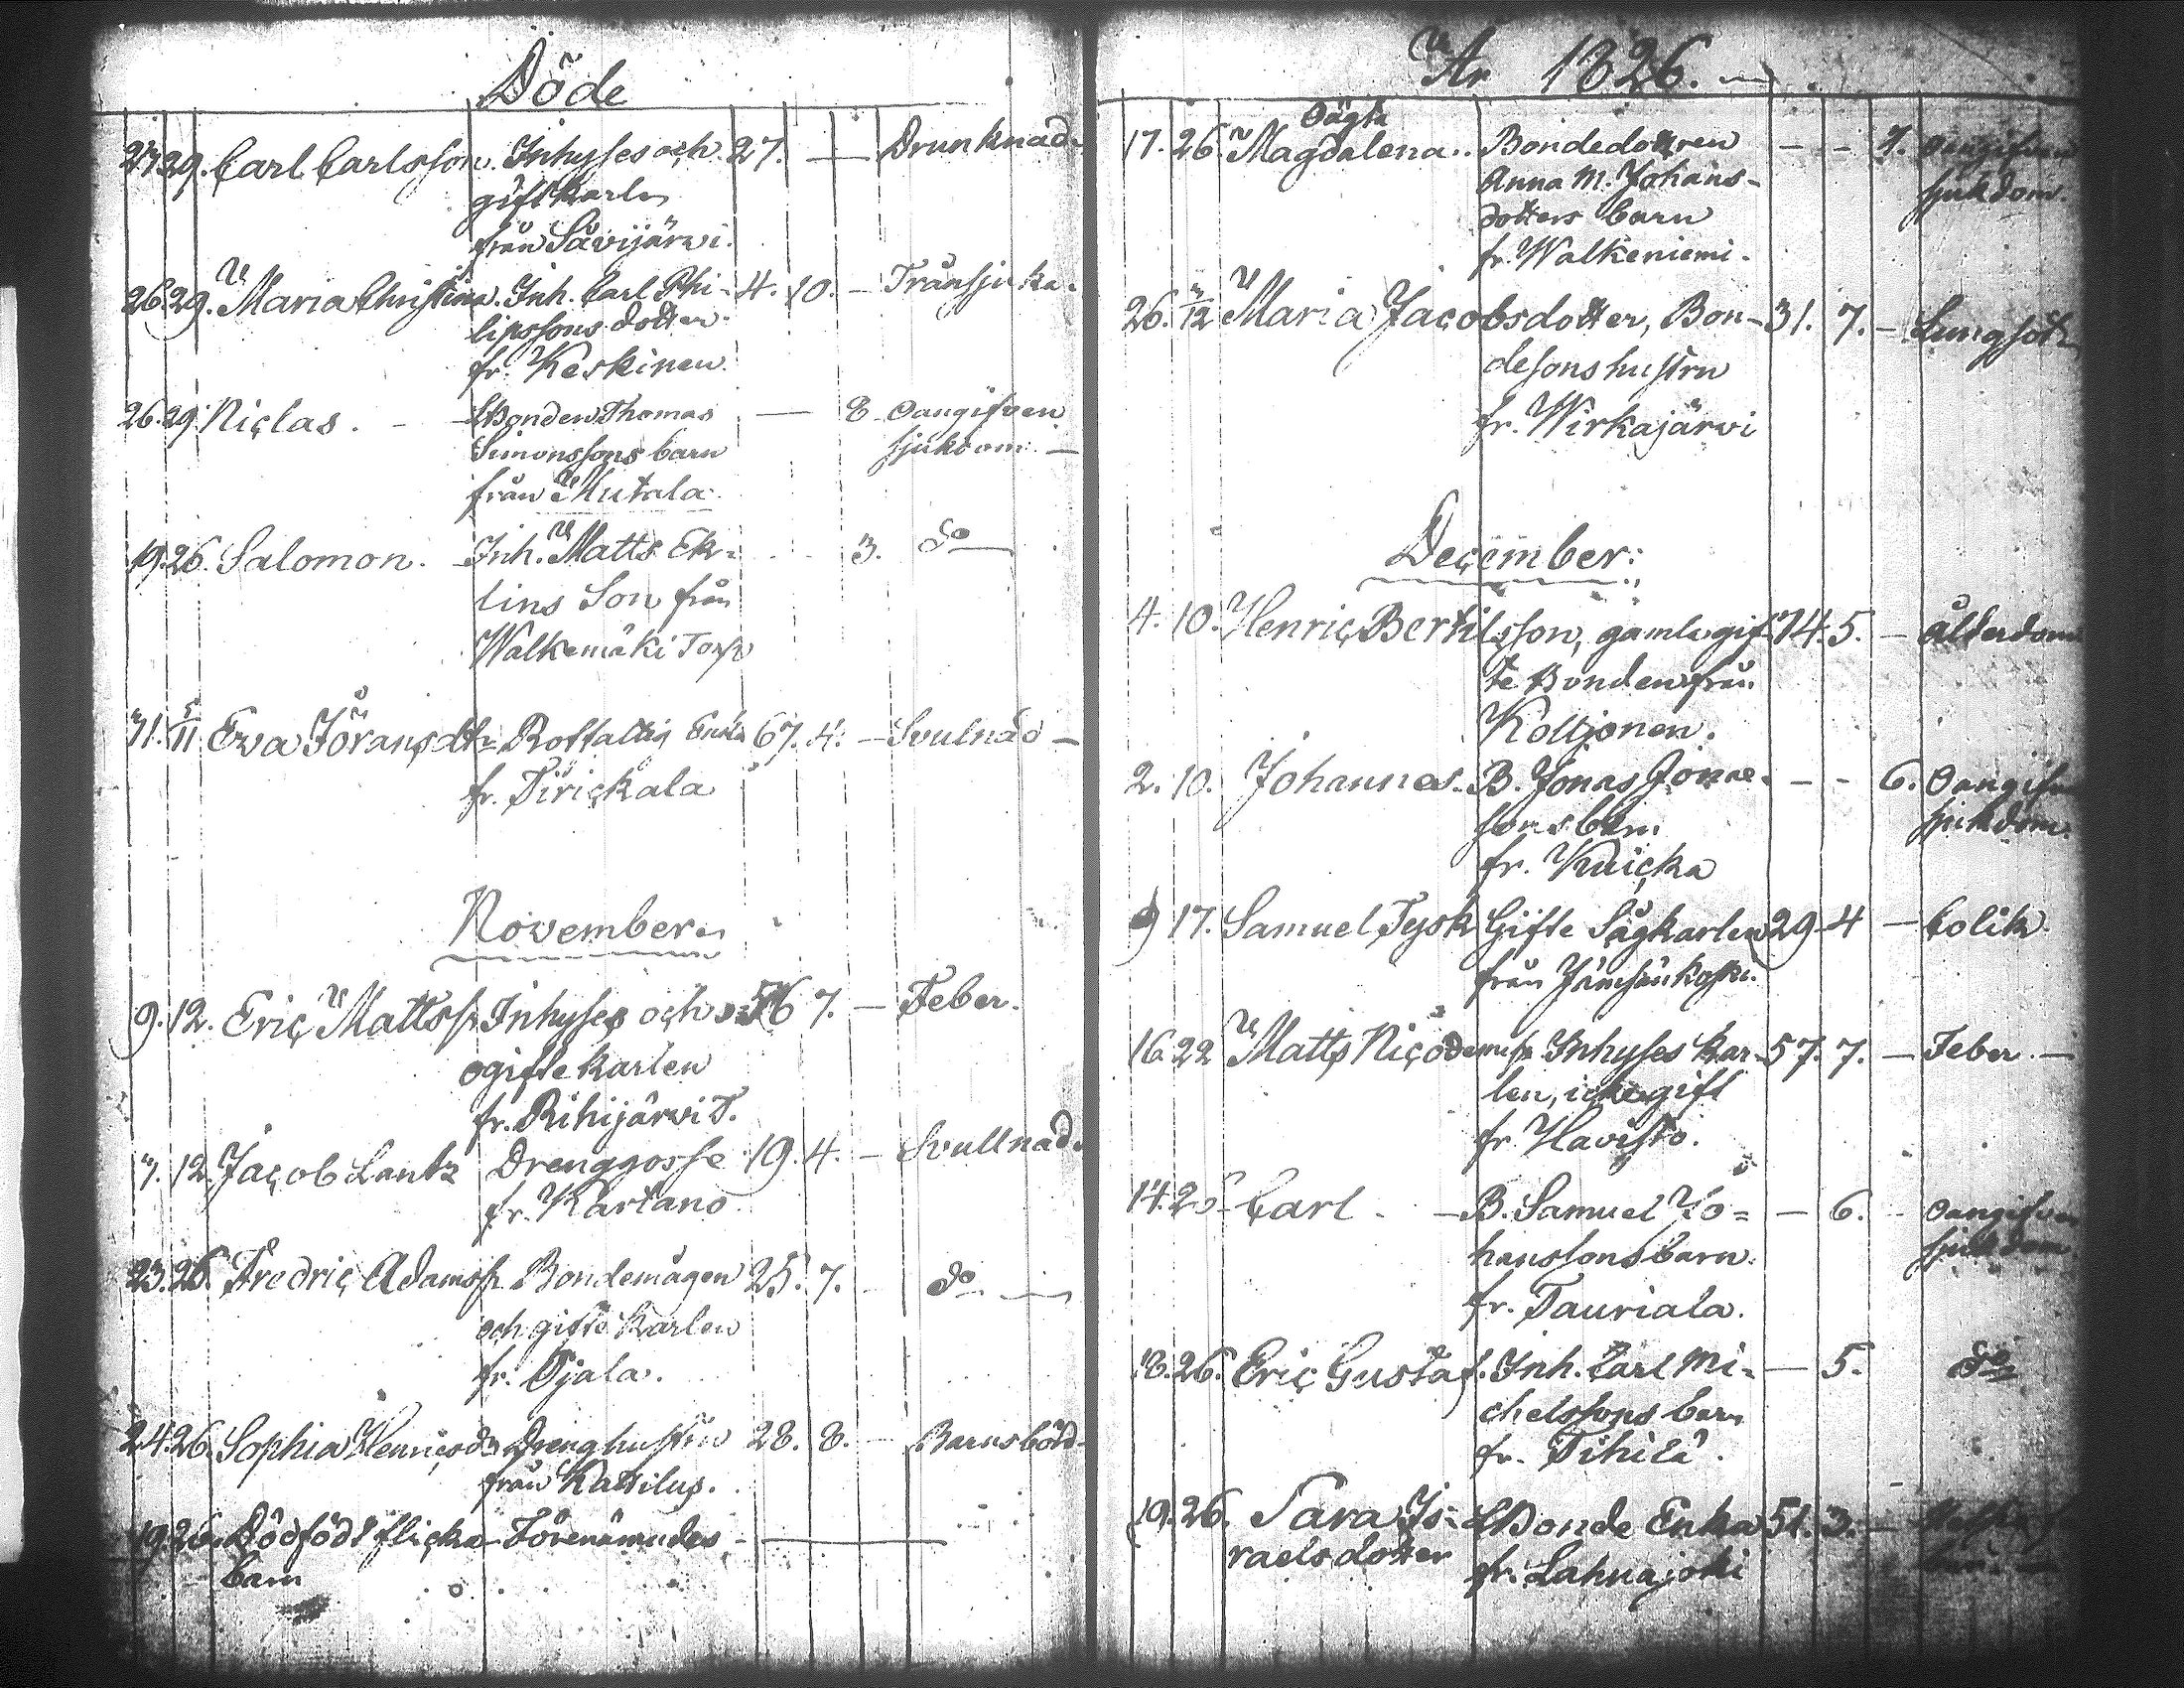 Döde
27. 29. Carl Carlsson. Inhyses och 27. — Drunknad.
gift karlen
från Savijärvi.
26. 29. Maria Christina. Inh. Carl Phi- 4. 10. — Transjuka.
lipssons dotter
fr. Keskinen
26. 29. Niclas. - Bonden Thomas — 8 oangifven
Simonssons barn sjukdom. —
från Mutala.
19. 26. Salomon. Inh. Matts Ek- 3. do
lins Son från
Walkemäki Torp
31. 5/11 Eva Göransdtr Rotfattig Enka 67. 4. — Svulnad —
fr. Pirickala
November
9. 12. Eric Mattss. Inhyses och 56 7. — Feber.
ogifte karlen
fr. Rihijärvi T.
7. 12. Jacob Lantz Drenggosse 19. 4. — Svullnad.
fr. Kartano
23. 26. Fredric Adamss. Bondemågen 25. 7. do
och gifte karlen
fr. Ojala.
24. 26. Sophia Henricsdr Drenghustru 28. 8. — Barnsbörd
från Kattilus.
19. 26. Dödfödt flicka - Förenämndes —
barn
År 1826.
oägta
17. 26. Magdalena.. Bondedottren - - - 7. oangifven
Anna M. Johans- sjukdom.
dotters barn
fr. Walkeniemi.
26. 3/12 Maria Jacobsdotter, Bon- 31. 7. — Lungsot
desons hustru
fr. Wirkajärvi
December:
4. 10. Henric Bertilsson, gamle gif- 74. 5. — ålderdom
te Bonden från
Koltjonen.
2. 10. Johannes. B. Jonas Jonae- - - 6. oangifven
sons barn sjukdom.
fr. Kuicka
9 17. Samuel Tysk Gifte Sågkarlen 29. 4 — Colik.
från Jämsänkoski.
16. 22 Matts Nicodemuss. Inhyses kar- 57. 7. — Feber. —
len, icke gift
fr. Havisto.
14. 25. Carl. - B. Samuel Jo= — 6. oangifven
hanssons barn. sjukdom.
fr. Tauriala.
18. 26. Eric Gustaf. Inh. Carl Mi- — 5. do
chelssons barn
fr. Tihilä.
19. 26. Sara Is- Bonde Enka 51. 3. —
raelsdotter fr. Lahnajoki